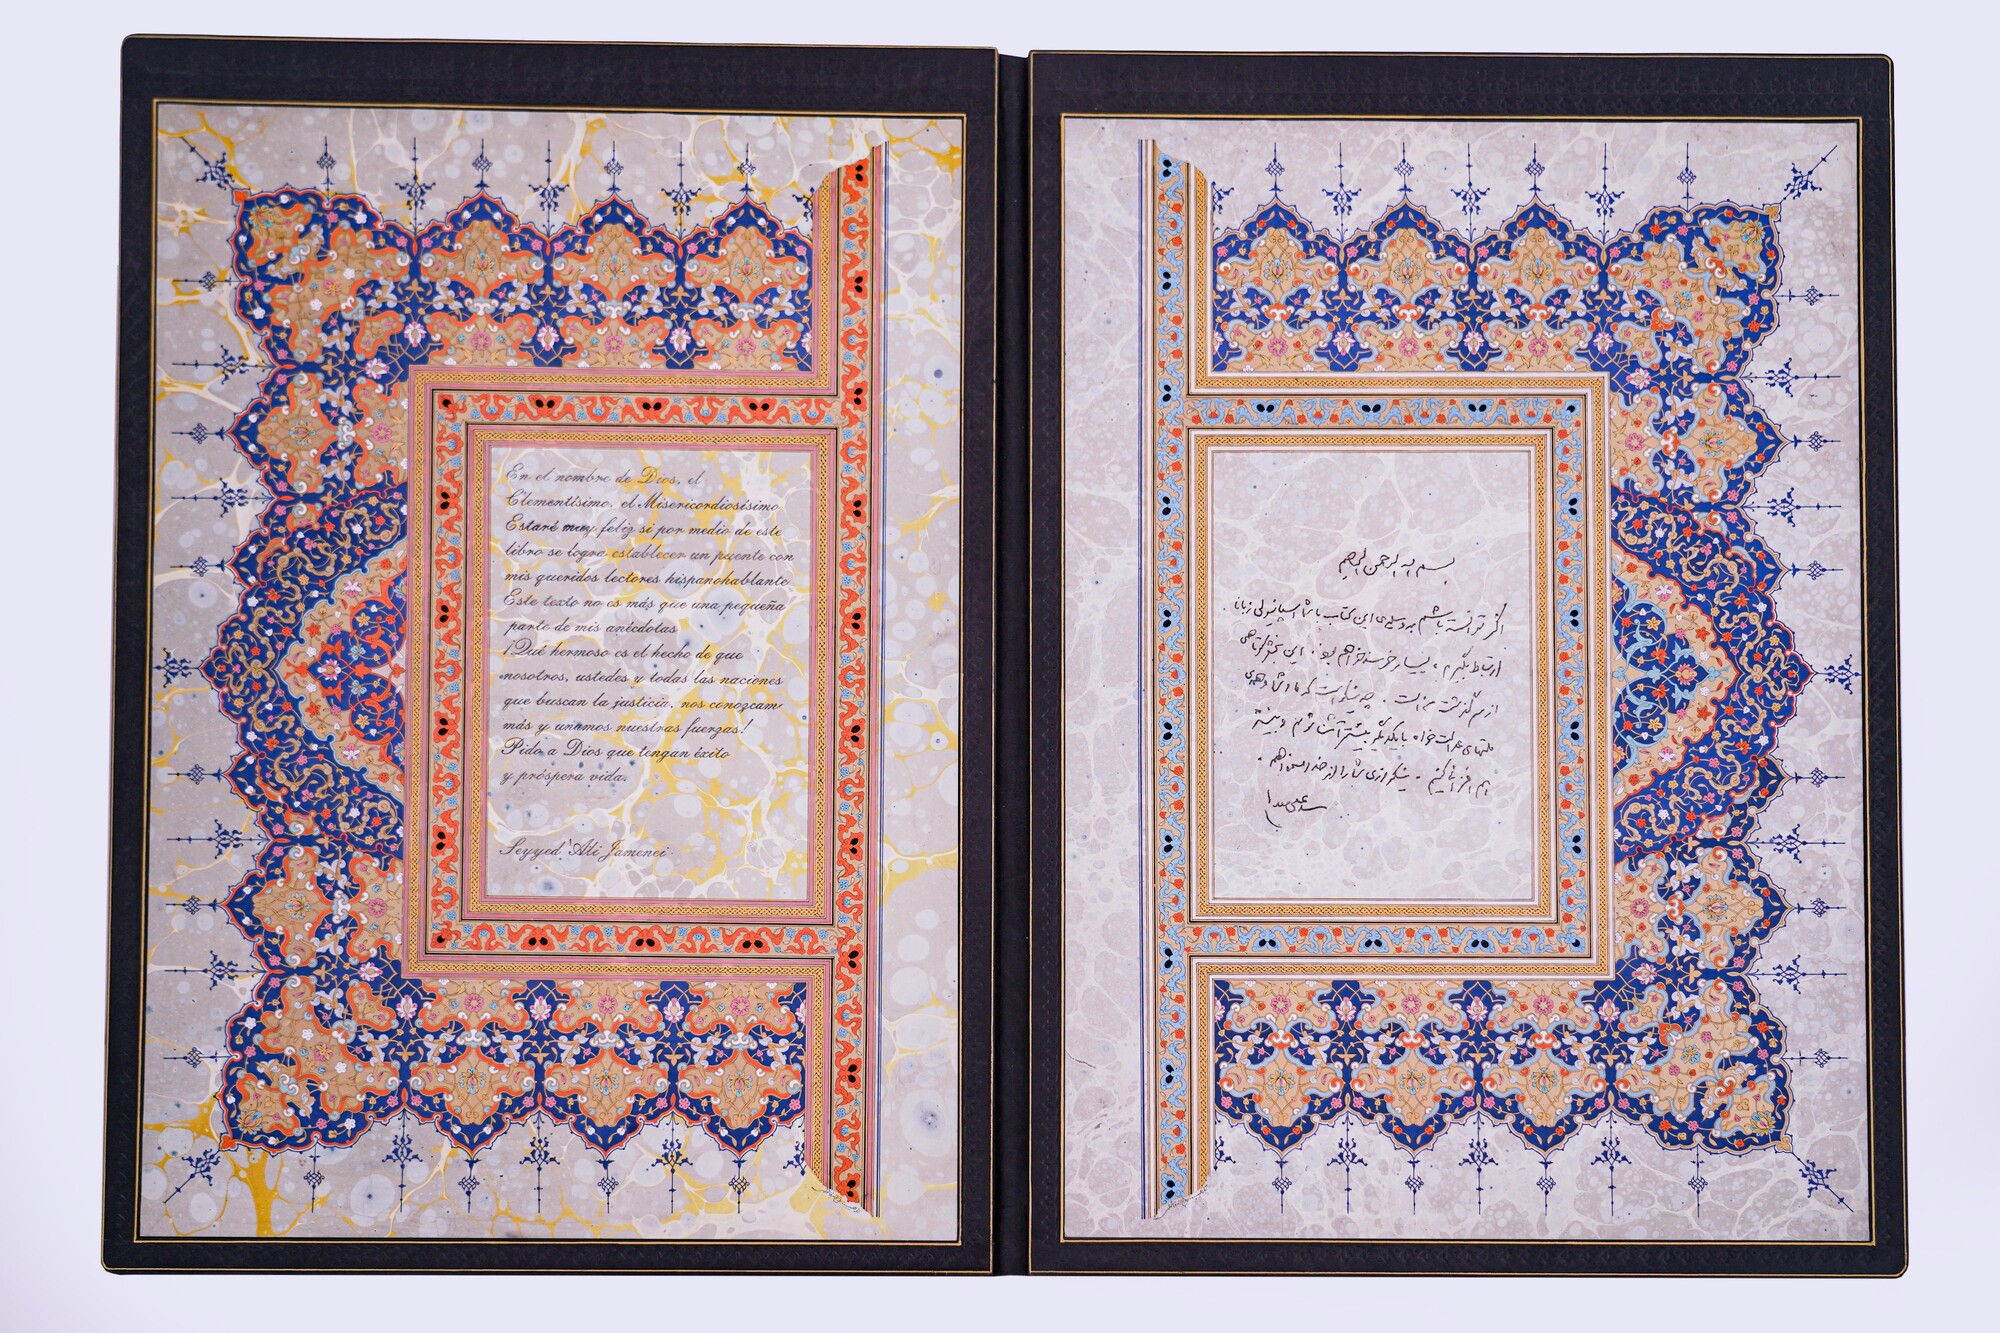 En el nombre de Dios, el
Clementísimo, el Misericordiosísimo
Estaré muy feliz si por medio de este
libro se logra establecer un puente con
mis queridos lectores hispanohablante
Este texto no es más que una pequeña
parte de mis anécdotas
¡Qué hermoso es el hecho de que
nosotros, ustedes y todas las naciones
que buscan la justicia, nos conozcam
más y unamos nuestras fuerzas!
Pido a Dios que tengan éxito
y próspera vida.
Seyyed ‘Ali Jamenei
بسم الله الرحمن الرحیم
اگر توانسته باشم به وسیله‌ی این کتاب با شما اسپانیولی زبانان
ارتباط بگیرم، بسیار خرسند خواهم بود. این بخش کوتاهی
از سرگذشت من است. چه نیکو است که ما و شما و همه‌ی
ملتهای عدالت خواه با یکدیگر بیشتر آشنا شویم و بیشتر
هم افزائی کنیم. نیکروزی شما را از خدا میخواهم.
سید علی خامنه‌ای